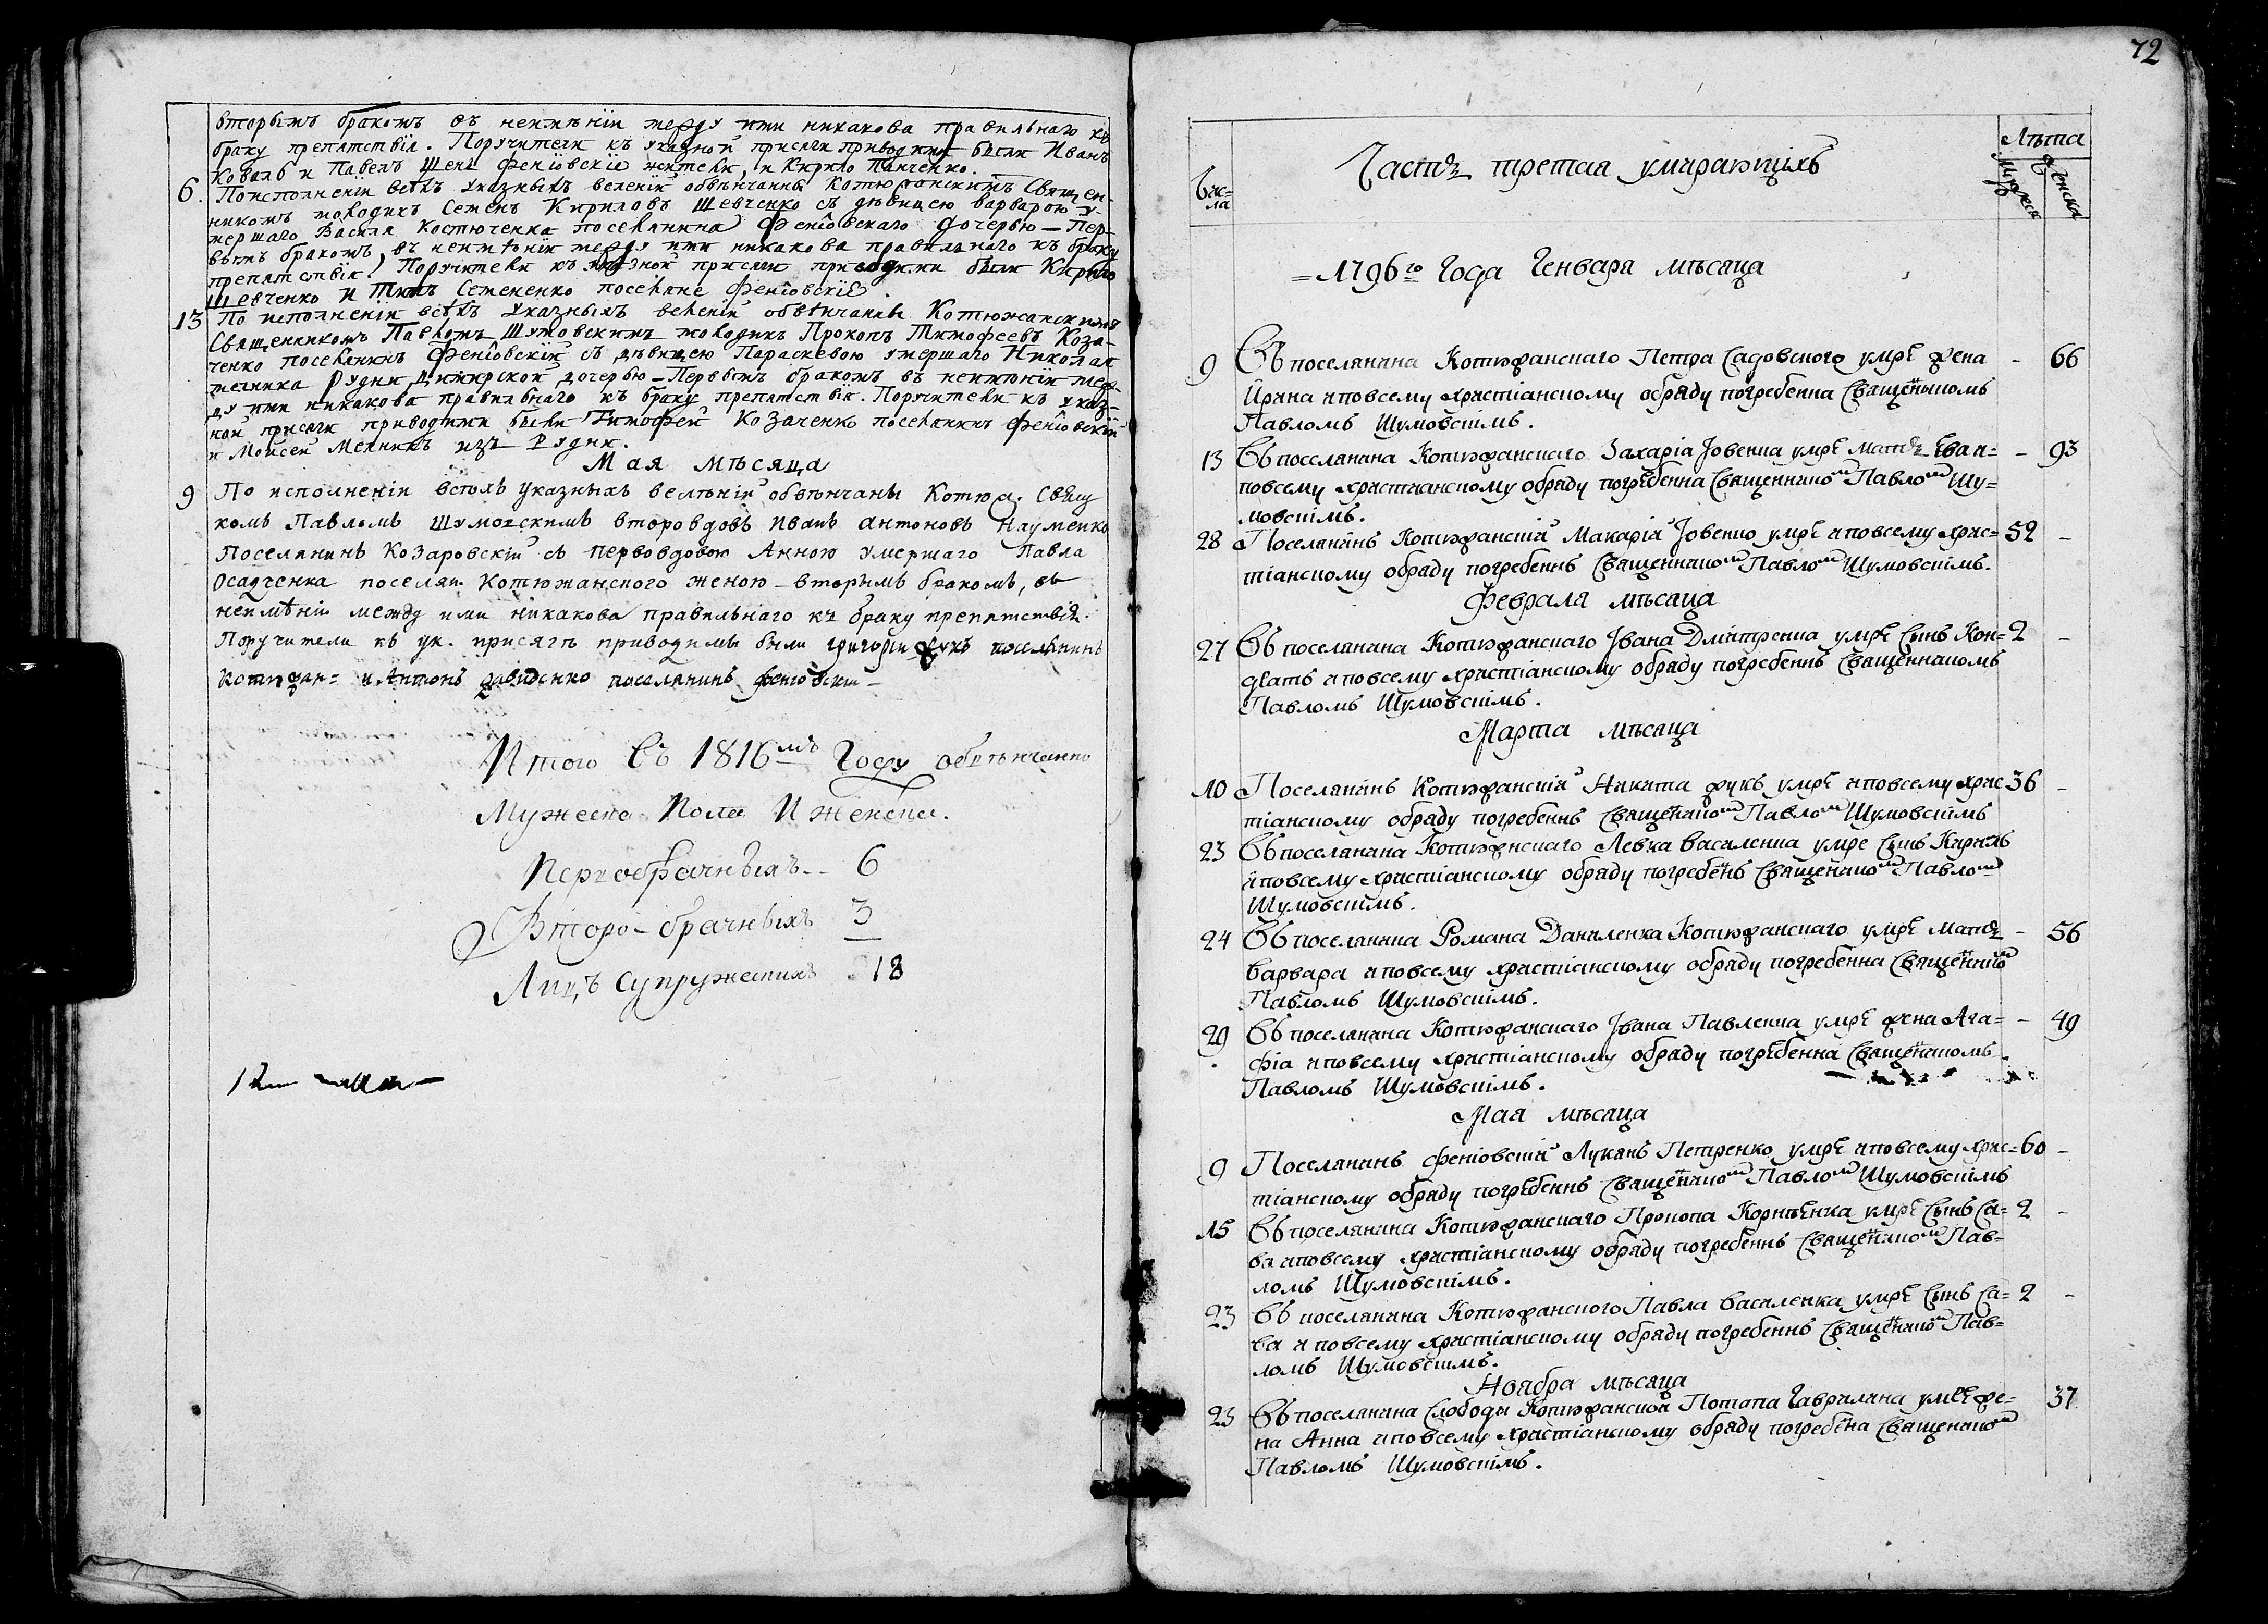 вторымъ бракомъ въ неимѣнїи между ими никакова правильнаго къ
браку препятствїя. Поручители къ указной присяги приводими были Иванъ
Коваль и Павелъ Шень Фенїовскїе жители, и Кирило Панченко.
6. По исполненїи всѣхъ указныхъ веленїй обвѣнчанны Котюжанскимъ Священ-
никомъ молодикъ Семенъ Кириловъ Шевченко съ дѣвицею Варварою у-
мершаго Василя Костюченка поселянина Фенїовскаго дочерью — Пер-
вымъ бракомъ, въ неимѣнїи между ими никакова правилнаго къ браку
препятствїя. Поручители къ указной присяги приводими были Кирило
Шевченко и Семененко поселяне Фенїовскїе
13 По исполненїи всѣхъ Указныхъ веленїй обвѣнчанны Котюжанскимъ
Священникомъ Павломъ Шумовскимъ молодикъ Прокопъ Тимофеевъ Коза-
ченко поселянинъ Фенїовскїй съ дѣвицею Параскевою умершаго Николая
мелника Рудни дочерью — Первымъ бракомъ въ неимѣнїи меж-
ду ими никакова правильнаго къ браку препятствїя. Поручители къ указ-
ной присяги приводими были Тимофей Козаченко поселянинъ Фенїовскїй
и Мойсей Мелникъ изъ Рудни.
Мая мѣсяца
9 По исполненіи всѣхъ указныхъ велѣній обвѣнчаны Котюж. Свящ
комъ Павломъ Шумовскимъ второвдовъ Иванъ Антоновъ Науменко
Поселянинъ Козаровскій съ первовдовою Анною умершаго Павла
Осадченка поселян. Котюжанского женою — вторымъ бракомъ, въ
неимѣніи между ими никакова правильнаго къ браку препятствія.
Поручители къ ук. присягѣ приводимы были григорій жукъ поселянинъ
котюжан= и Антонъ давиденко поселянинъ феніовскій —
Итого Въ 1816мъ Году обвѣнчанно
Мужеска Пола И женска.
Первобрачныхъ.. 6
Второ-брачныхъ 3
Лицъ супружескихъ 18
72
Числа
Часть третая умирающихъ
Лѣта
Мужеска
Женска
=1796го Года Генваря мѣсяца
9 Въ поселянина Котюжанскаго Петра Садовского умре жена - 66
Ирина и по всему христіанскому обряду погребенна Священникомъ
Павломъ Шумовскимъ.
13 Въ поселянина Котюжанскаго Захаріа Іовенка умре мать Ева и= - 93
по всему христианскому обряду погребенна Священникомъ Павломъ Шу=
мовскимъ.
28 Поселянинъ Котюжанскій Макарій Іовенко умре и по всему хрис= 52 -
тіанскому обряду погребеннъ Священникомъ Павломъ Шумовскимъ.
Февраля мѣсяца
27 Въ поселянина Котюжанскаго Івана Дмитренка умре Сынъ Кон= 2 -
дратъ и по всему христіанскому обряду погребеннъ Священникомъ
Павломъ Шумовскімъ.
Марта мѣсяца
10 Поселянинъ Котюжанскій Никита жукъ умре и по всему хрис 36 -
тіанскому обряду погребеннъ Священикомъ Павломъ Шумовскімъ
23 Въ поселянина Котюжнскаго Левка Василенка умре Сынъ Кирилъ
и по всему христіанскому обряду погребенъ Священикомъ Павломъ
Шумовскімъ.
24 Въ поселянина Романа Даниленка Котюжанскаго умре мать - 56
Варвара и по всему христіанскому обряду погребенна Священикомъ
Павломъ Шумовскімъ.
29 Въ поселянина Котюжанскаго Івана Павленка умре жена Ага= - 49
фіа и по всему христіанскому обряду погребенна Священикомъ
Павломъ Шумовскімъ.
Мая мѣсяца
9 Поселянинъ феніовскій Лукянъ Петренко умре и по всему хрис= 60 -
тіанскому обряду погребеннъ Священикомъ Павломъ Шумовскімъ
15 Въ поселянина Котюжанскаго Прокопа Корнѣенка умре Сынъ Са= 2 -
ва и по всему христіанскому обряду погребеннъ Священикомъ Пав=
ломъ Шумовскімъ.
23 Въ поселянина Котюжанского Павла Василенка умре Сынъ Са= 2 -
ва и по всему христіанскому обряду погребеннъ Священикомъ Пав=
ломъ Шумовскімъ.
Ноября мѣсяца
23 Въ поселянина Слободы Котюжанской Потапа Гаврилина умре же= 37
на Анна и по всему христіанскому обряду погребена Священикомъ
Павломъ Шумовскімъ.